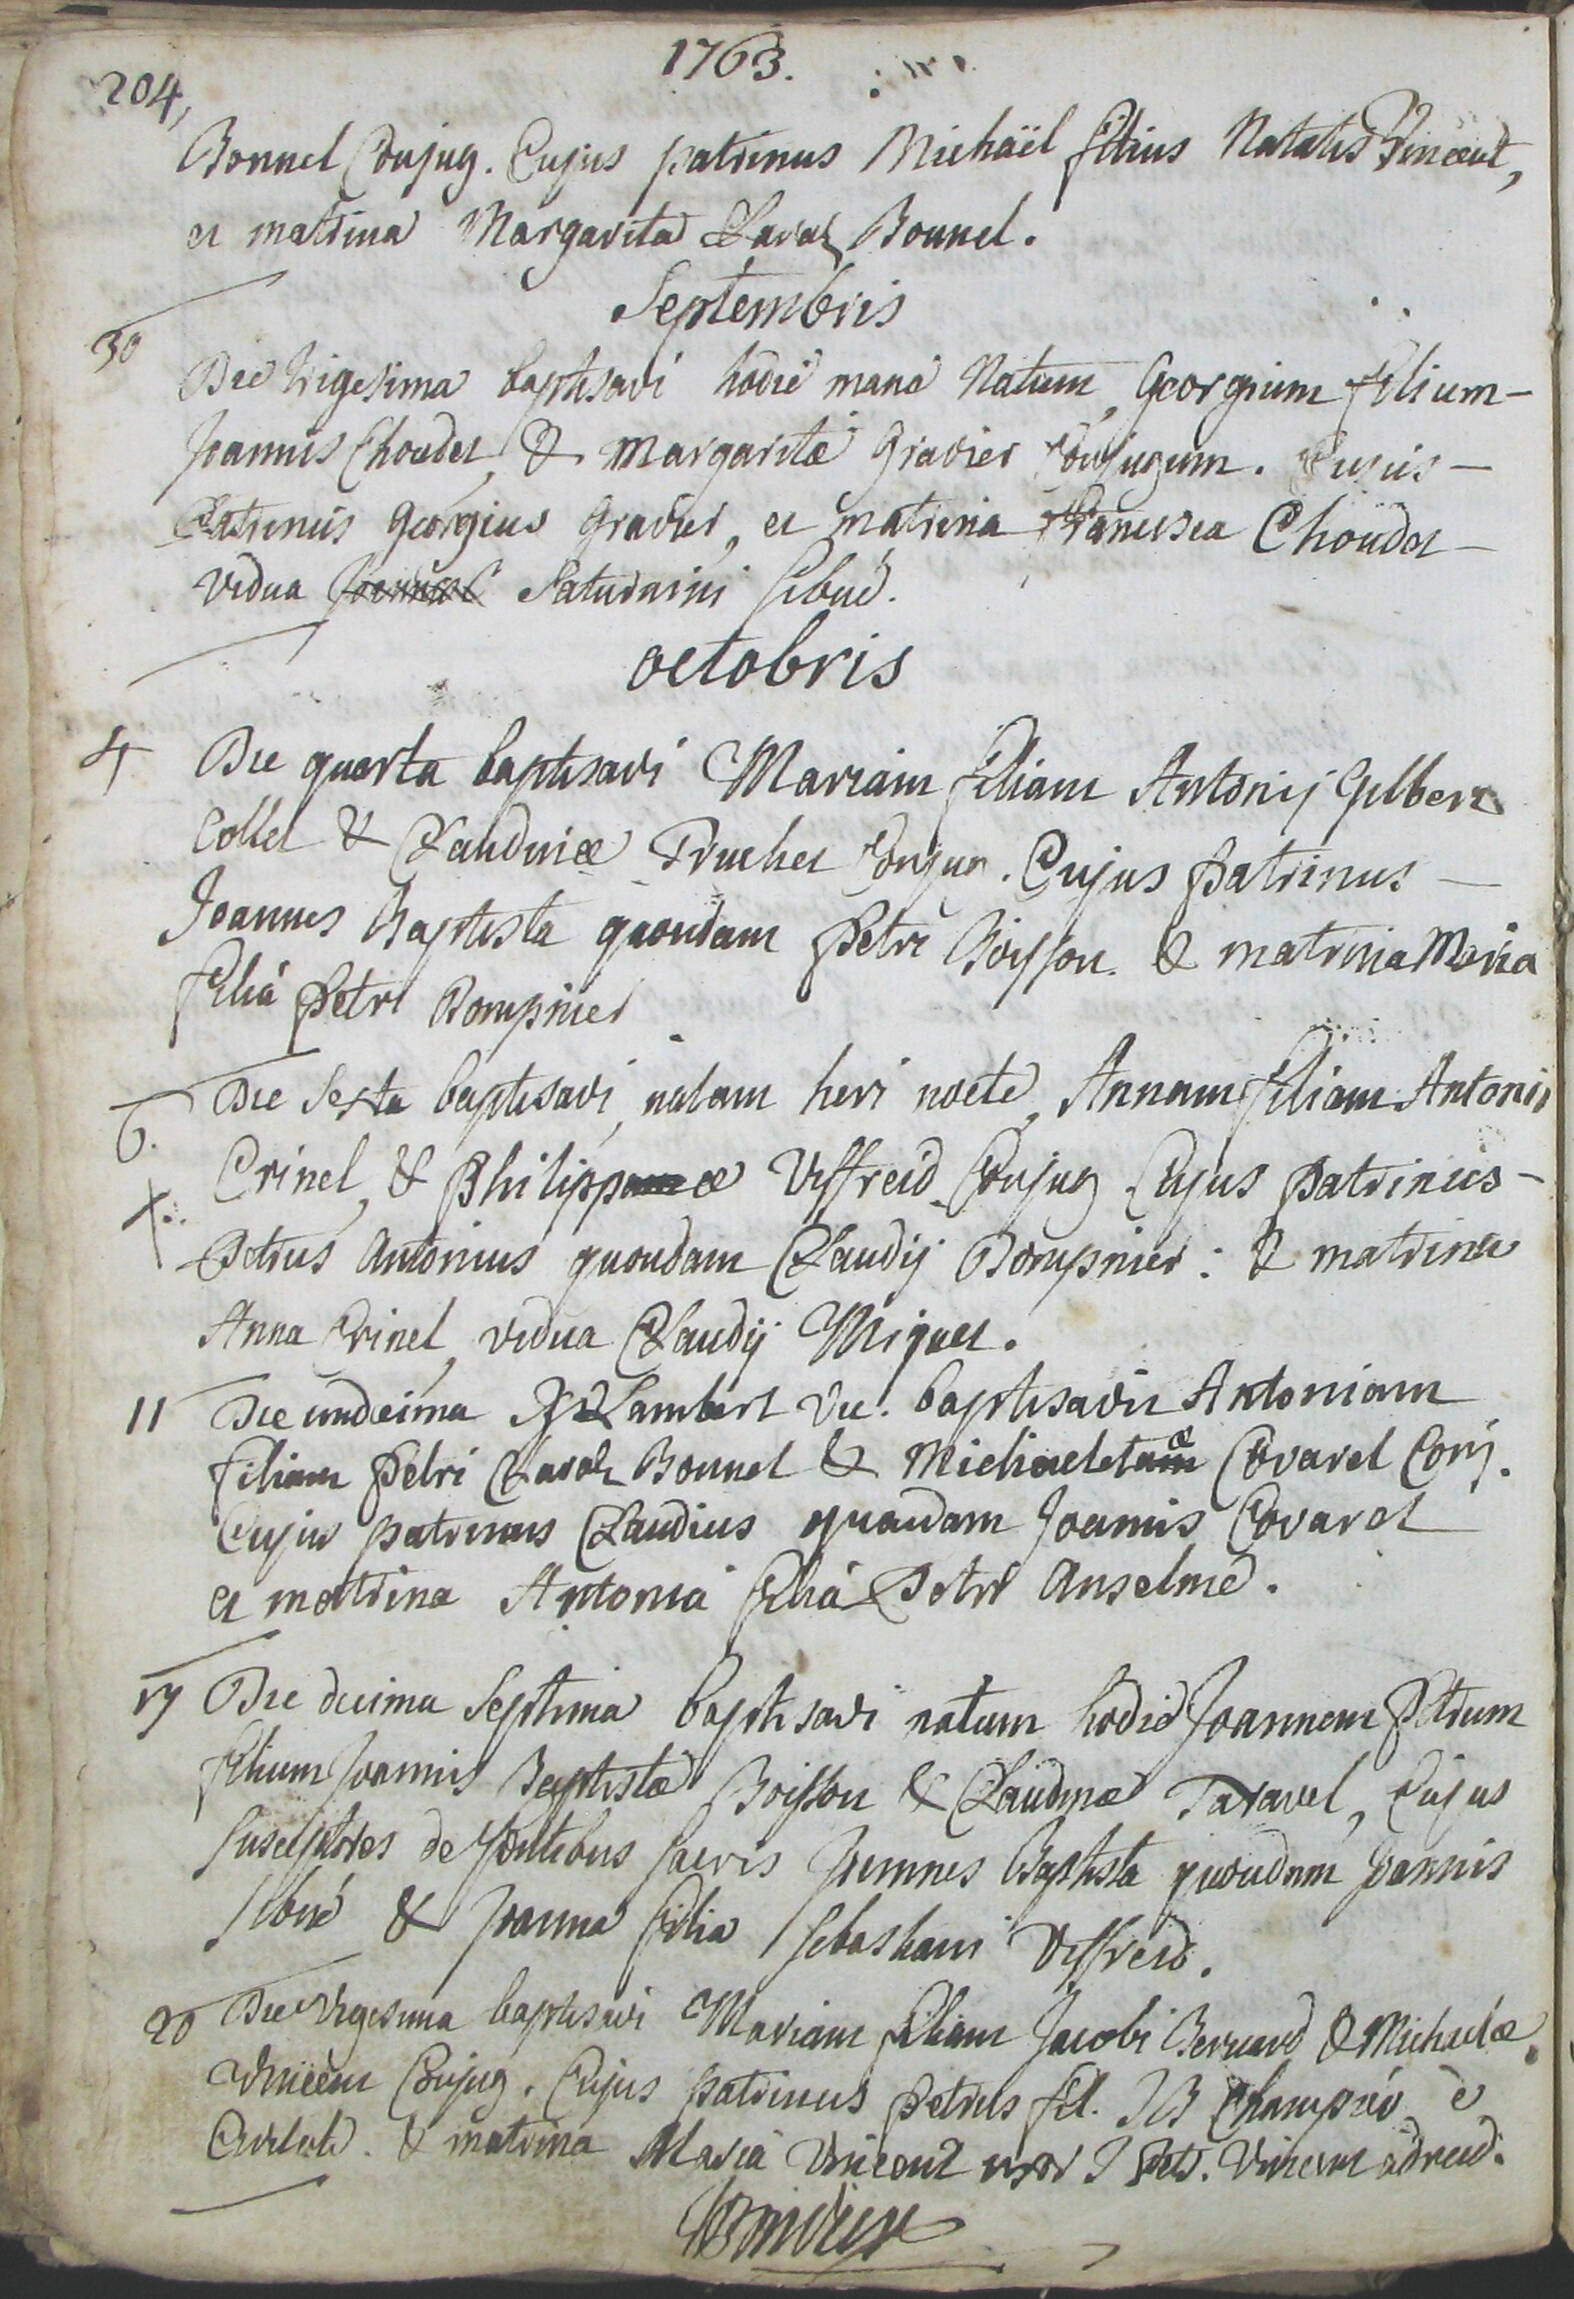 1763.
204,
Bonnel Conjug. Cujus patrinus Michaël filius Natalis Vincent,
et matrina Margarita Claraz Bonnel.
Septembris
30
Die trigesima baptisavi hodie mane Natum, Georgium filium-
Joannis Choudet, & Margaritæ Gravier Conjugum. Cujus-
Patrinus Georgius Gravier, et matrina Francisca Choudet-
vidua Saturnini sibué.
octobris
4 Die quarta baptisavi Mariam filiam Antonij Gilbert
Collet & Claudinæ Truchet Conjug. Cujus Patrinus-
Joannes Baptista quondam Petri Boisson. & matrina Maria
filia Petri Bompnier
6. Die Sexta baptisavi, natam heri nocte, Annam filiam Antonii
Crinel, & Philippæ Viffreid Conjug. Cujus Patrinus-
Petrus Antonius quondam Claudij Bompnier: & matrina
Anna Crinel, vidua Claudij Miquet.
11 Die undecima Lambert Vic. baptisavit Antoniam
filiam Petri Claraz Bonnel & Michaeletæ Covarel Conj.
Cujus patrinus Claudius quondam Joannis Covarel
et matrina Antonia filia Petri Anselme.
17 Die decima Septima baptisavi natum hodie Joannem Petrum
filium Joannis Baptistæ Boisson & Claudinæ Taravel, Cujus
susceptores de fontibus sacris Joannes Baptista quondam Joannis
sibué & Joanna filia sebastiani Viffreid.
20 Die vigesima baptisavi Mariam filiam Jacobi Bernard & Michaelæ
Vincent Conjug. Cujus patrinus Petrus fil. JB Champié è
& matrina Maria Vincent uxor J Petr. Vincent